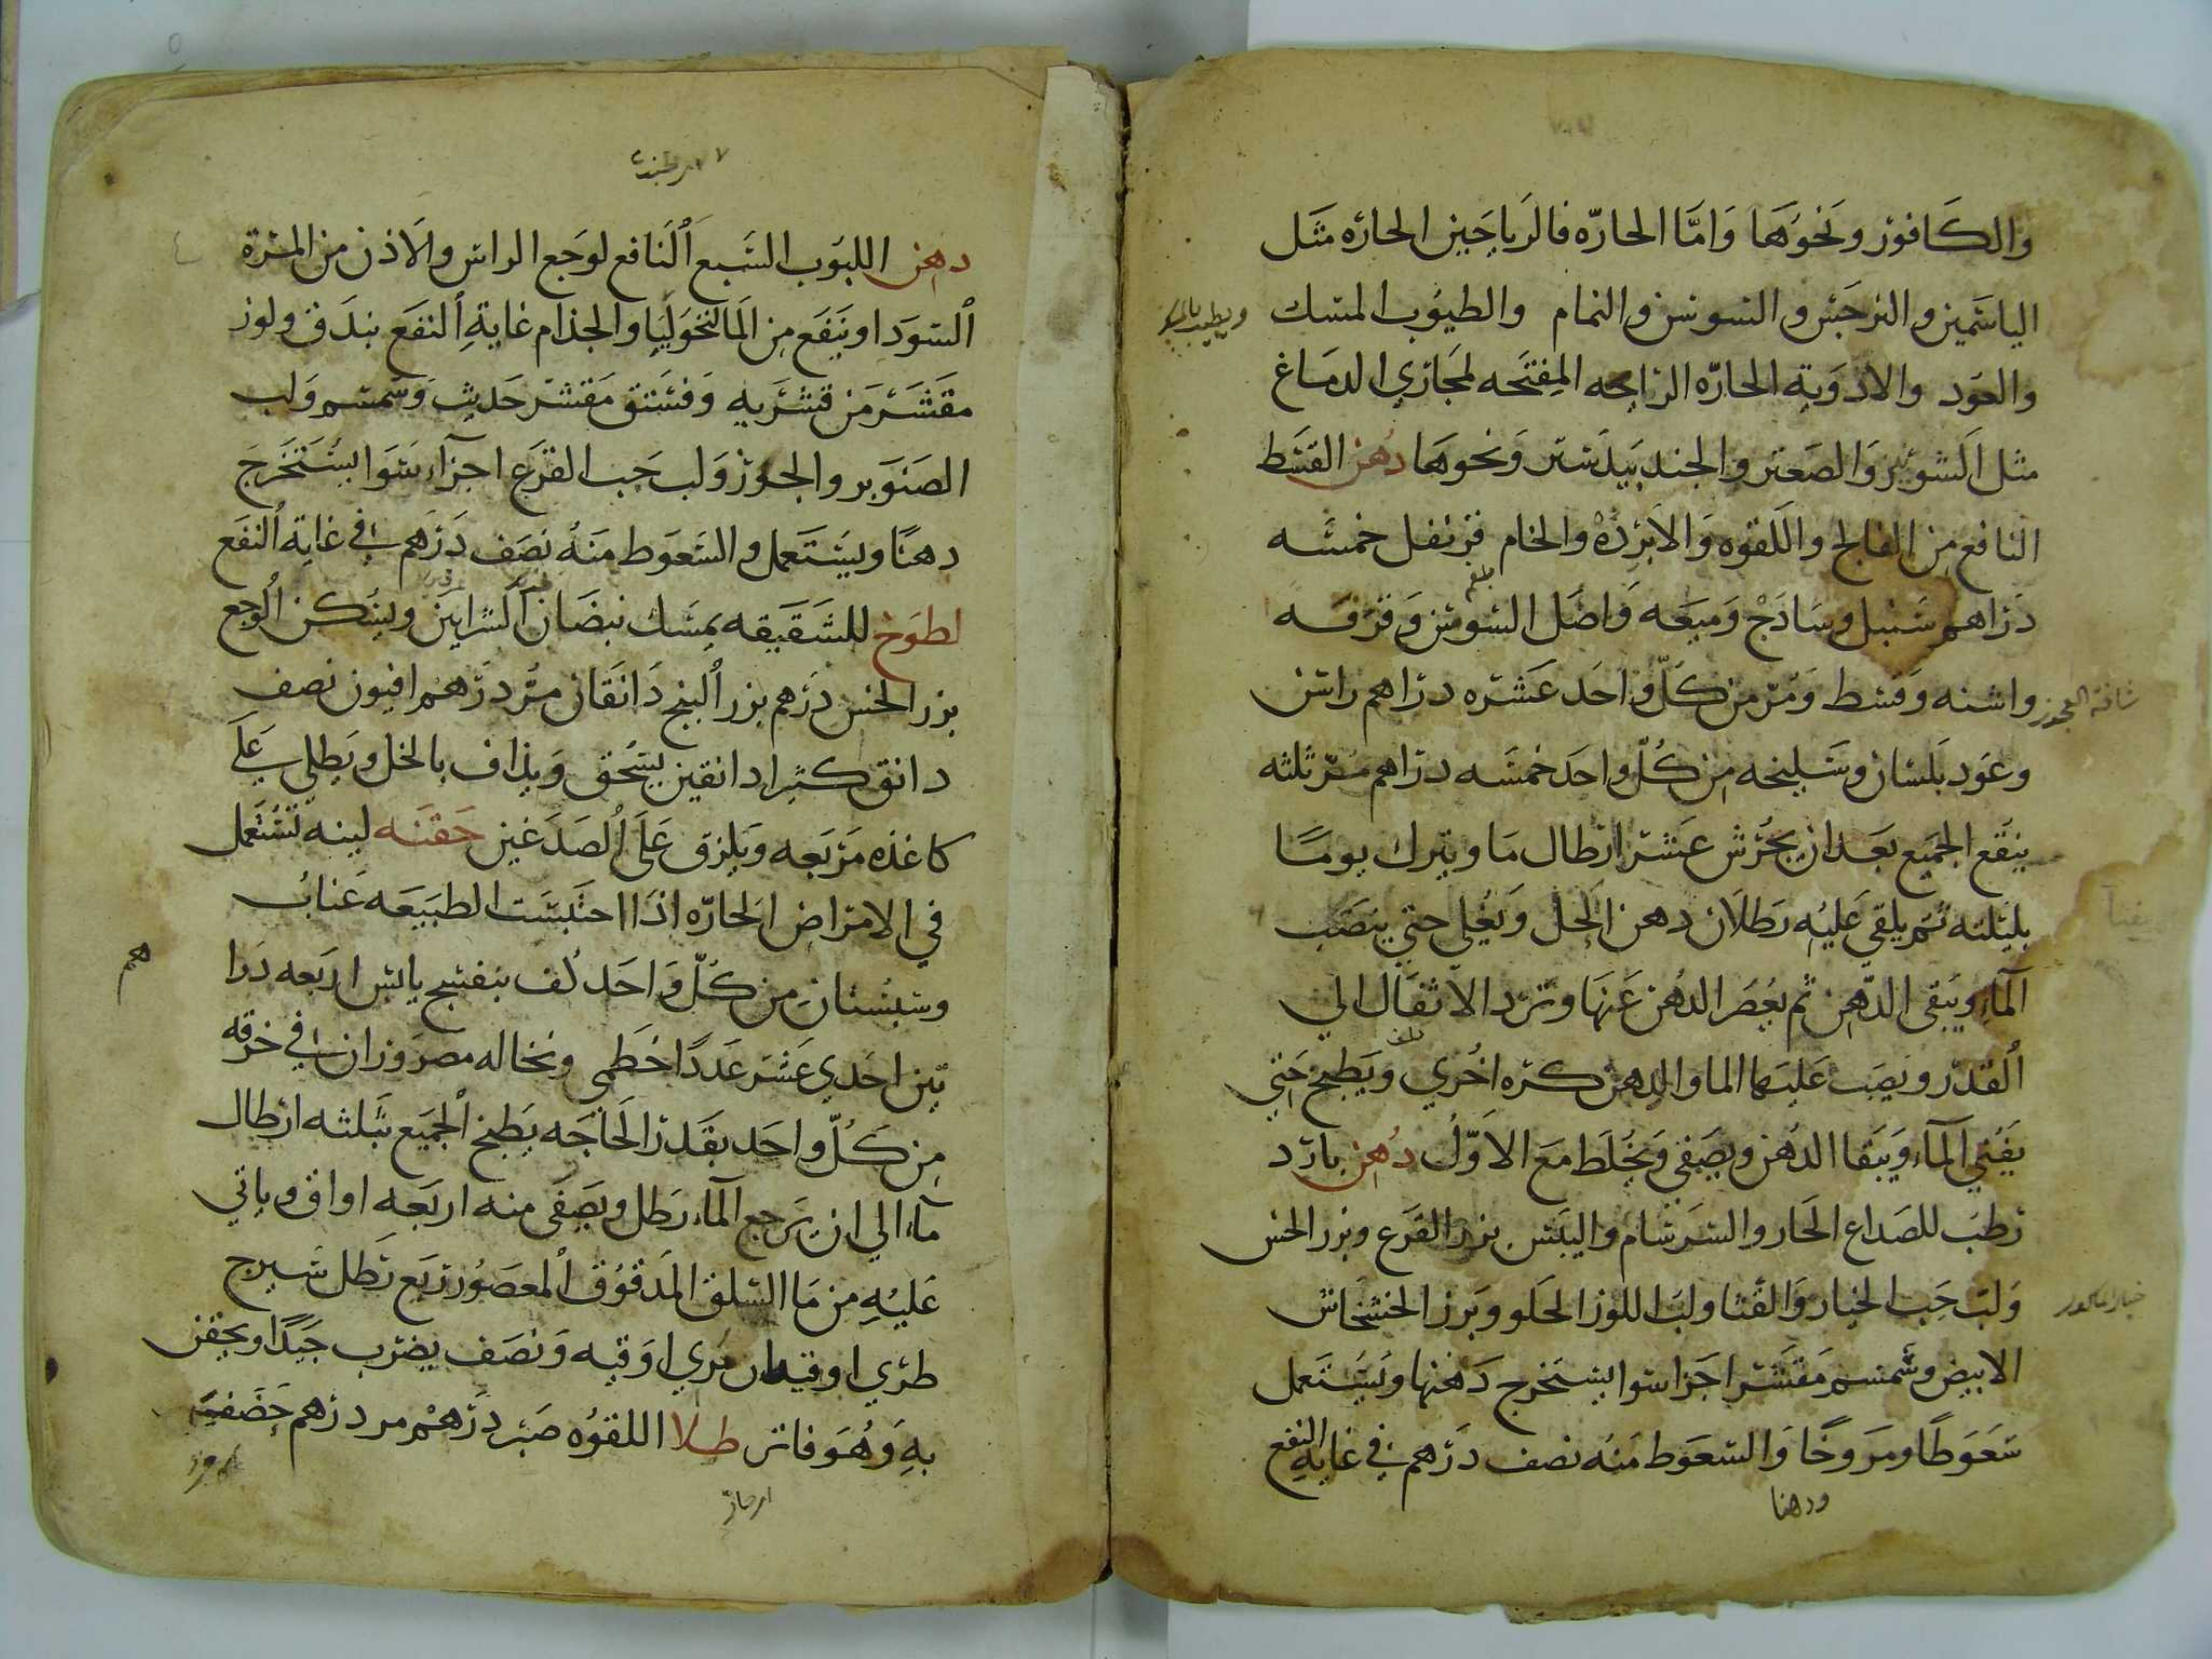 والكافور ونحوها واما الحاره فالرياحين الحاره مثل
الياسمين والنرجس والسوسن والنمام والطيوب المسك
والعود والادوية الحاره الرايحه المفتحه لمجاري الدماغ
مثل الشونيز والصعتر والجندبيدستر ونحوها دهن القسط
النافع من الفالج واللقوه والابرده والخام قرنفل خمسه
دراهم سنبل وساذج وميعه واصل السوسن وقرفه
واشنه وقسط ومر من كل واحد عشره دراهم راسن
وعود بلسان وسليخه من كل واحد خمسه دراهم مر ثلثه
ينقع الجميع بعد ان يجرش عشر ارطال ما ويترك يوما
بليلته ثم يلقى عليه رطلان دهن الحل ويغلي حتي ينضب
الماء ويبقى الدهن ثم يعصر الدهن عنها وترد الاثفال الي
القدر ويصب عليها الما والدهن كره اخري ويطبخ حتي
يفني الماء ويبقا الدهن ويصفي ويخلط مع الاول دهن بارد
رطب للصداع الحار والسرسام واليبس بزر القرع وبزر الخس
ولب حب الخيار والقثا ولب اللوز الحلو وبزر الخشخاش
الابيض وسمسم مقشر اجزا سوا يستخرج دهنها ويستعمل
سعوطا ومروخا والسعوط منه نصف درهم في غايه النفع
ودهنا
دهن اللبوب السبع النافع لوجع الراس والاذن من المرة
السودا وينفع من المالنخوليا والجذام غاية النفع بندق ولوز
مقشر من قشريه وفستق مقشر حديث وسمسم ولب
الصنوبر والجوز ولب حب القرع اجزاء سوا يستخرج
دهنا ويستعمل والسعوط منه نصف درهم في غاية النفع
لطوخ للشقيقه يمسك نبضان الشرايين ويسكن الوجع
بزر الخس درهم بزر البنج دانقان مر درهم افيون نصف
دانق كثيرا دانقين يسحق ويذاف بالخل ويطلي علي
كاغذه مربعه ويلزق على الصدغين حقنه لينه تستعمل
في الامراض الحاره اذا احتبست الطبيعه عناب
وسبستان من كل واحد كف بنفسج يابس اربعه درا
هم
تين احدي عشر عددا خطمي ونخاله مصروران في خرقه
من كل واحد بقدر الحاجه يطبخ الجميع بثلثه ارطال
ماء الي ان يرجع الماء رطل ويصفى منه اربعه اواق وياتي
عليه من ما السلق المدقوق المعصور ربع رطل شيرج
طري اوقيتان مري اوقيه ونصف يضرب جيدا ويحقن
به وهو فاتر طلا اللقوه صبر درهم مر درهم حضض